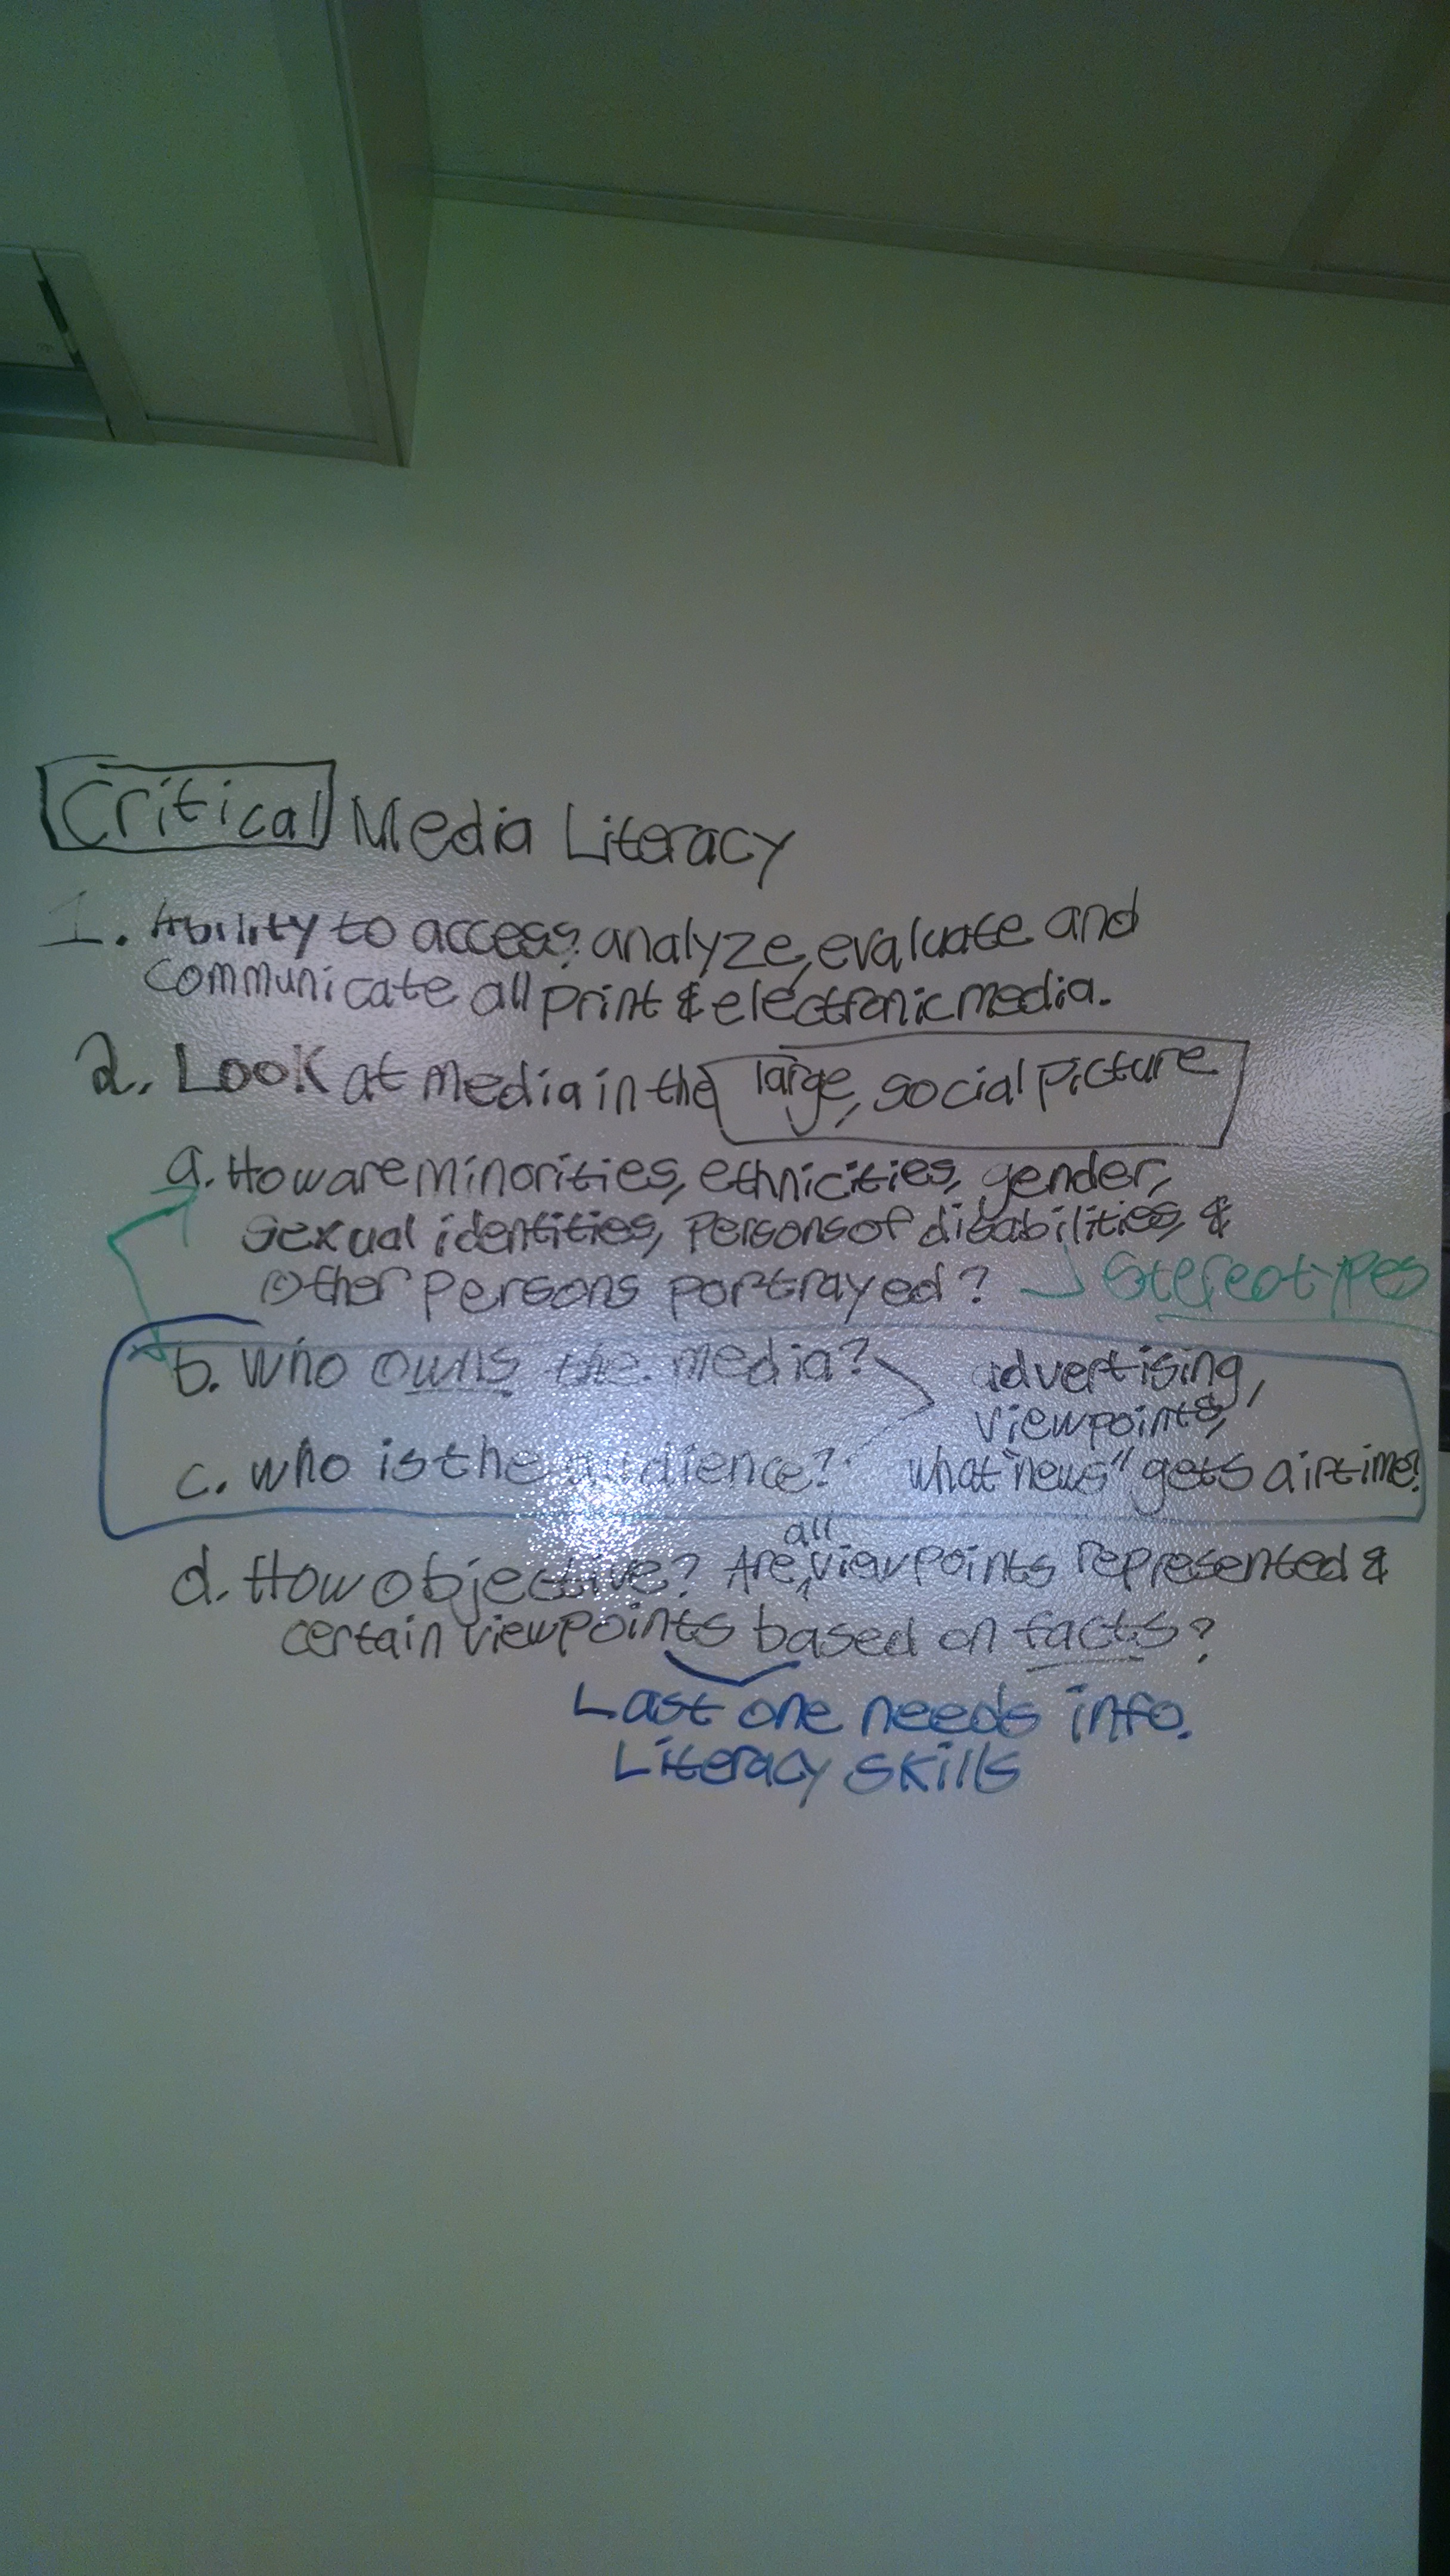 Critical Media Literacy
1. Ability to access, analyze, evaluate and
communicate all print & electronic media.
2. Look at media in the large, social picture
a. How are minorities, ethnicities, gender,
sexual identities, persons of disabilities, &
other persons portrayed? Stereotypes
b. Who owns the media? advertising,
viewpoints,
c. who is the audience? what "news" gets airtime?
all
d. How objective? Are viewpoints represented &
certain viewpoints based on facts?
Last one needs info.
Literacy skills